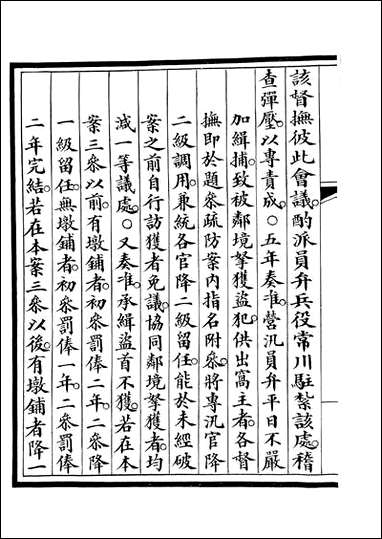 該督撫彼此會議酌派員弁兵役常川駐紮該處稽
查彈壓以專責成○五年奏准營汛員弁平日不嚴
加緝捕致被鄰境拏獲盜犯供出窩主者各督
撫即於題叅疏防案內指名附叅將專汛官降
二級調用兼統各官降二級留任能於未經破
案之前自行訪獲者免議協同鄰境拏獲者均
減一等議處○又奏准承緝盜首不獲若在本
案三叅以前有墩鋪者初叅罰俸二年二叅降
一級留任無墩鋪者初叅罰俸一年二叅罰俸
二年完結若在本案三叅以後有墩鋪者降一